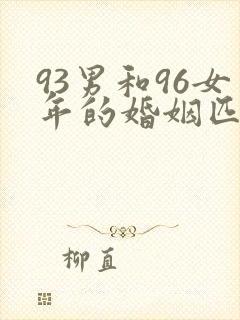 93男和96女
年的婚姻匹
柳直